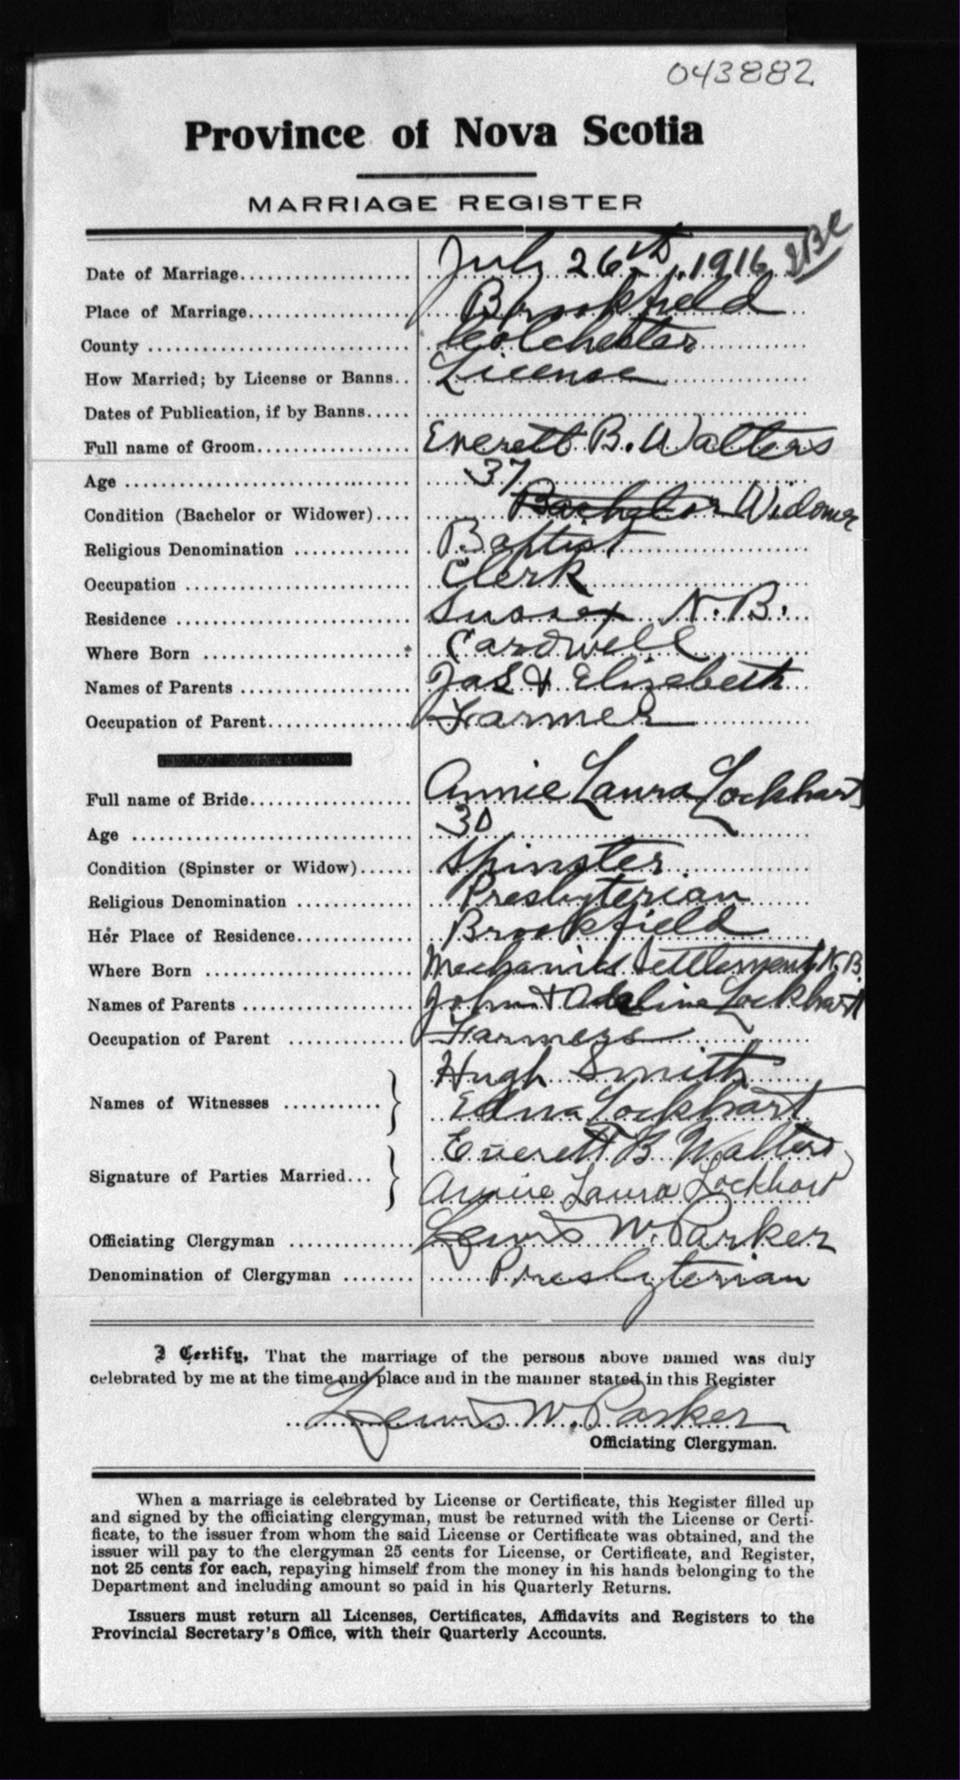 043882
Province of Nova Scotia
MARRIAGE REGISTER
Date of Marriage.................... July 26th, 1916
Place of Marriage.................. Brookfield
County ............................. Colchester
How Married; by License or Banns.. License
Dates of Publication, if by Banns.....
Full name of Groom.................. Everett B. Walters
Age ................................ 37
Condition (Bachelor or Widower).... Bachelor Widower
Religious Denomination ............ Baptist
Occupation ......................... Clerk
Residence .......................... Sussex N.B.
Where Born ........................ Cardwell
Names of Parents .................. Jas & Elizabeth
Occupation of Parent................ Farmer
Full name of Bride.................. Annie Laura Lockhart
Age ................................ 30
Condition (Spinster or Widow)...... Spinster
Religious Denomination ............ Presbyterian
Her Place of Residence............. Brookfield
Where Born ........................ Mechanics Settlement, N.B.
Names of Parents .................. John & Adeline Lockhart
Occupation of Parent .............. Farmers
Names of Witnesses ........... } Hugh Smith
Edna Lockhart
Signature of Parties Married... } Everett B Walters
Annie Laura Lockhart
Officiating Clergyman ............. Lewis W. Parker
Denomination of Clergyman ........ Presbyterian
I Certify, That the marriage of the persons above named was duly
celebrated by me at the time and place and in the manner stated in this Register
Lewis W. Parker
Officiating Clergyman.
When a marriage is celebrated by License or Certificate, this Register filled up
and signed by the officiating clergyman, must be returned with the License or Certi-
ficate, to the issuer from whom the said License or Certificate was obtained, and the
issuer will pay to the clergyman 25 cents for License, or Certificate, and Register,
not 25 cents for each, repaying himself from the money in his hands belonging to the
Department and including amount so paid in his Quarterly Returns.
Issuers must return all Licenses, Certificates, Affidavits and Registers to the
Provincial Secretary's Office, with their Quarterly Accounts.